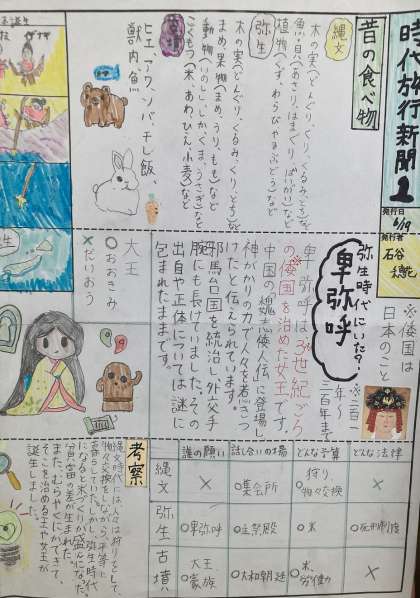 時代旅行新聞1
発行日
6/19
発行者
石谷
昔の食べ物
縄文
木の実(どんぐり、くり、くるみ、とち)など
魚・貝(あさり、はまぐり、ばいがい)など
植物(くず、わらびやまぶどう)など
弥生
木の実(どんぐり、くり、くるみ、とち)など
まめ、果物(まめ、うり、もも)など
動物(いのしし、しか、くま、うさぎ)など
こくもつ(米、あわ、ひえ、小麦)など
ヒエ、アワ、ソバ、干し飯、
獣肉、魚
※倭国は
日本のこと
弥生時代にいた?
卑弥呼
※二百一
年〜
三百年まで
卑弥呼は3世紀ごろ
の倭国を治めた女王です。
中国の「魏志」倭人伝に登場し
神がかりの力で人々を惹きつ
けたと伝えられています。
邪馬台国を統治し、外交手
腕にも長けていました。その
出自や正体については謎に
包まれたままです。
大王
○おおきみ
×だいおう
誰の願い
話し合いの場
どんな予算
どんな法律
縄文
×
○集会所
○狩り、物々交換
×
弥生
○卑弥呼
○主祭殿
○米
古墳
○大王、豪族
○大和朝廷
○米、労働力
×
考察
縄文時代には人々は狩りをして、
物々交換をしながら、平等に
暮らしていた。しかし、弥生時代
になると米づくりが盛んになって
貧富の差が生まれた。
また、むらやくにができてきて、
そこを治める王や女王が
誕生しました。